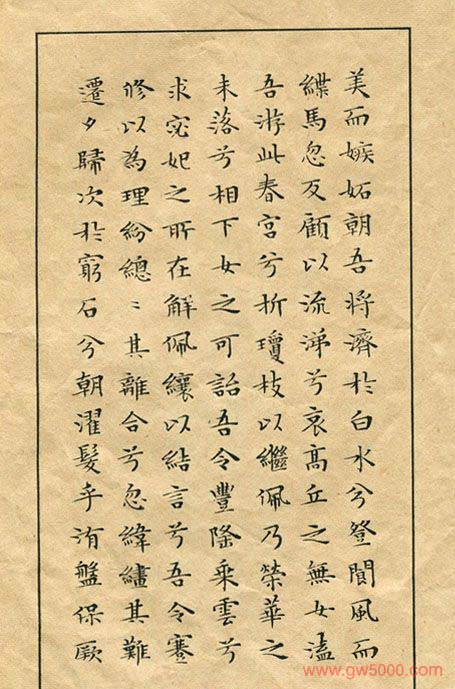 美而嫉妬朝吾将濟於白水兮登閬風而
緤馬忽反顧以流涕兮哀高丘之無女溘
吾游此春宮兮折瓊枝以繼佩乃榮華之
未落兮相下女之可詒吾令豐隆乘雲兮
求宓妃之所在解佩纕以結言兮吾令蹇
修以為理紛總〻其離合兮忽緯繣其難
遷夕歸次於窮石兮朝濯髮乎洧盤保厥
www.gw5000.com